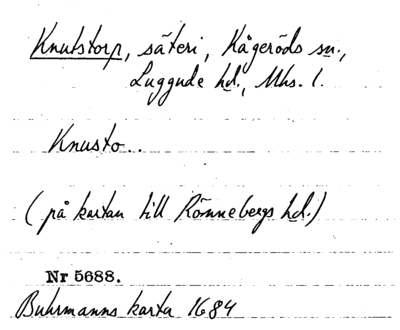 Knutstorp, säteri, Kågeröds sn.,
Luggude hd., Mhs. l.
Knusto..
(på kartan till Rönnebergs hd.)
Nr 5688.
Buhrmanns karta 1684